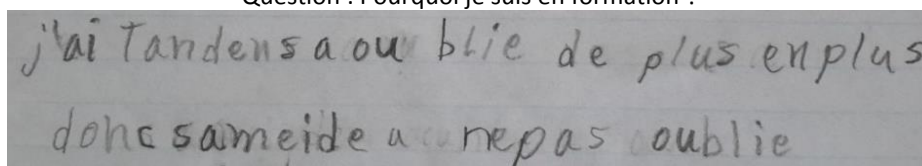 Question : Pourquoi je suis en formation ?
j'ai Tandens a ou blie de plus en plus
donc sameide a ne pas oublie